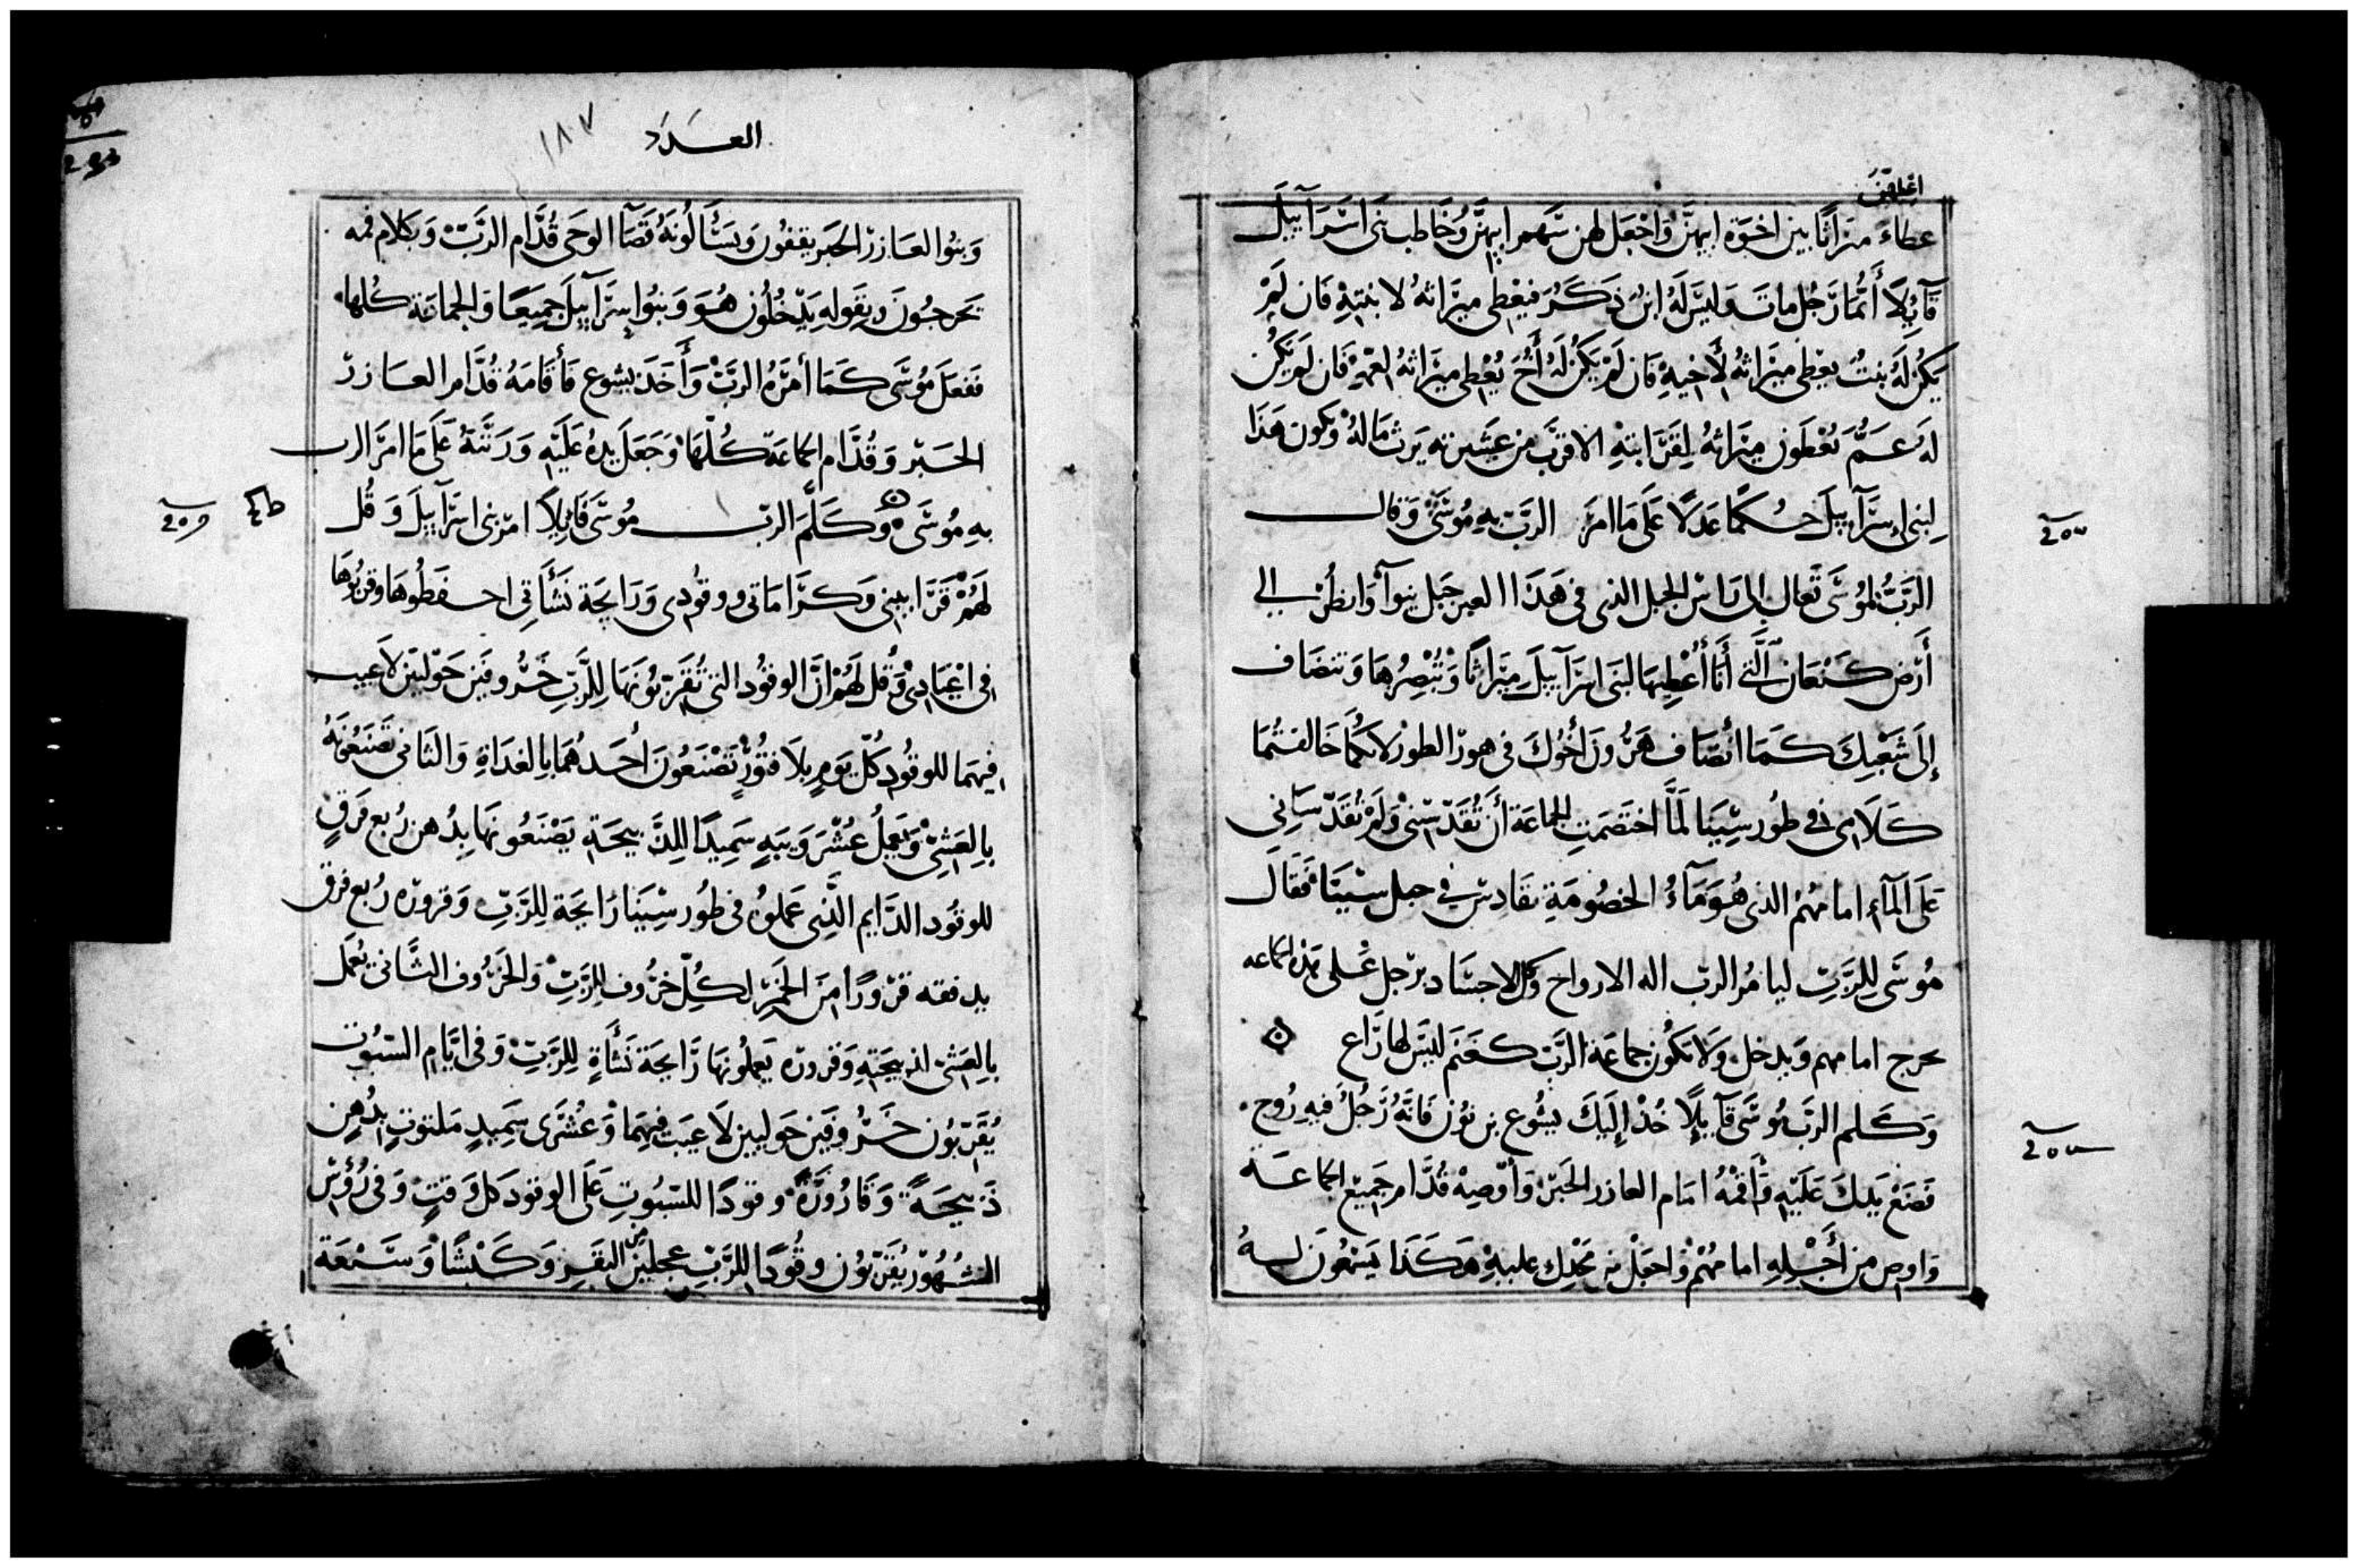 اعطهن
عطاء ميراثا بين اخوة ابيهن واجعل لهن سهم ابيهن وخاطب بنى اسرآييل
قآيلا أيما رجل مات وليس له ابن ذكر فيعطى ميراثه لابنته فان لم
يكن له بنت يعطى ميراثه لأخيه فان لم يكن له أخ يعطى ميراثه لعمه فان لم يكن
له عم يعطون ميراثه لقرابته الاقرب من عشيرته يرث ماله ويكون هذا
لبنى إسرآييل حكما عدلا على ما امر الرب به موسى وقال
الرب لموسى تعال إلى راس الجبل الذى فى هذا العبر جبل نبوا وانظر الى
أرض كنعان التى أنا أعطيها لبنى اسرآييل ميراثا وتبصرها وتنضاف
إلى شعبك كما انضاف هرون أخوك فى هور الطور لانكما خالفتما
كلامى فى طور سينا لما اختصمت الجماعة أن تقدسنى ولم تقدسانى
على المآء امامهم الذى هو مآء الخصومة بقادس فى جبل سينا فقال
موسى للرب ليامر الرب اله الارواح وكل الاجساد برجل على هذه الجماعه
يخرج امامهم ويدخل ولا تكون جماعة الرب كغنم ليس لها راع
وكلم الرب موسى قآيلا خذ إليك يشوع بن نون فانه رجل فيه روح
فضع يدك عليه وأقمه امام العازر الحبر وأوصيه قدام جميع الجماعة
واوص من أجله امامهم واجعل من مجدك عليه هكذا يسمعون له
العدد ١٨٧
وبنوا العازر الحبر يقفون ويسألونه قضآ الوحى قدام الرب وبكلام فمه
يخرجون وبقوله يدخلون هو وبنوا إسرآييل جميعا والجماعة كلها
ففعل موسى كما أمره الرب وأخذ يشوع فأقامه قدام العازر
الحبر وقدام الجماعة كلها وجعل يده عليه ورتبه على ما امر الرب
به موسى وكلم الرب موسى قائلا امر بنى اسرآييل وقل
لهم قرابينى وكراماتى ووقودى ورايحة نشأتى احفظوها وقربوها
فى اعيادى وقل لهم ان الوقود التى تقربونها للرب خروفين حوليين لا عيب
فيهما للوقود كل يوم بلا فتور تصنعون أحدهما بالغداة والثانى تصنعونه
بالعشى ويعمل عشر ويبه سميدا للذبيحة يصنعونها بدهن ربع فرق
للوقود الدايم الذى عملوه فى طور سينا رايحة للرب وقروره ربع فرق
يدفقه قرورا من الخمر لكل خروف للرب والخروف الثانى يعمل
بالعشى لذبيحته وقروره يعملونها رايحة نشأة للرب وفى ايام السبوت
يقربون خروفين حوليين لا عيب فيهما وعشرى سميد ملتوت بدهن
ذبيحة وقارورة وقودا للسبوت على الوقود كل وقت وفى رؤس
الشهور يقربون وقودا للرب عجلين من البقر وكبشا وسبعة